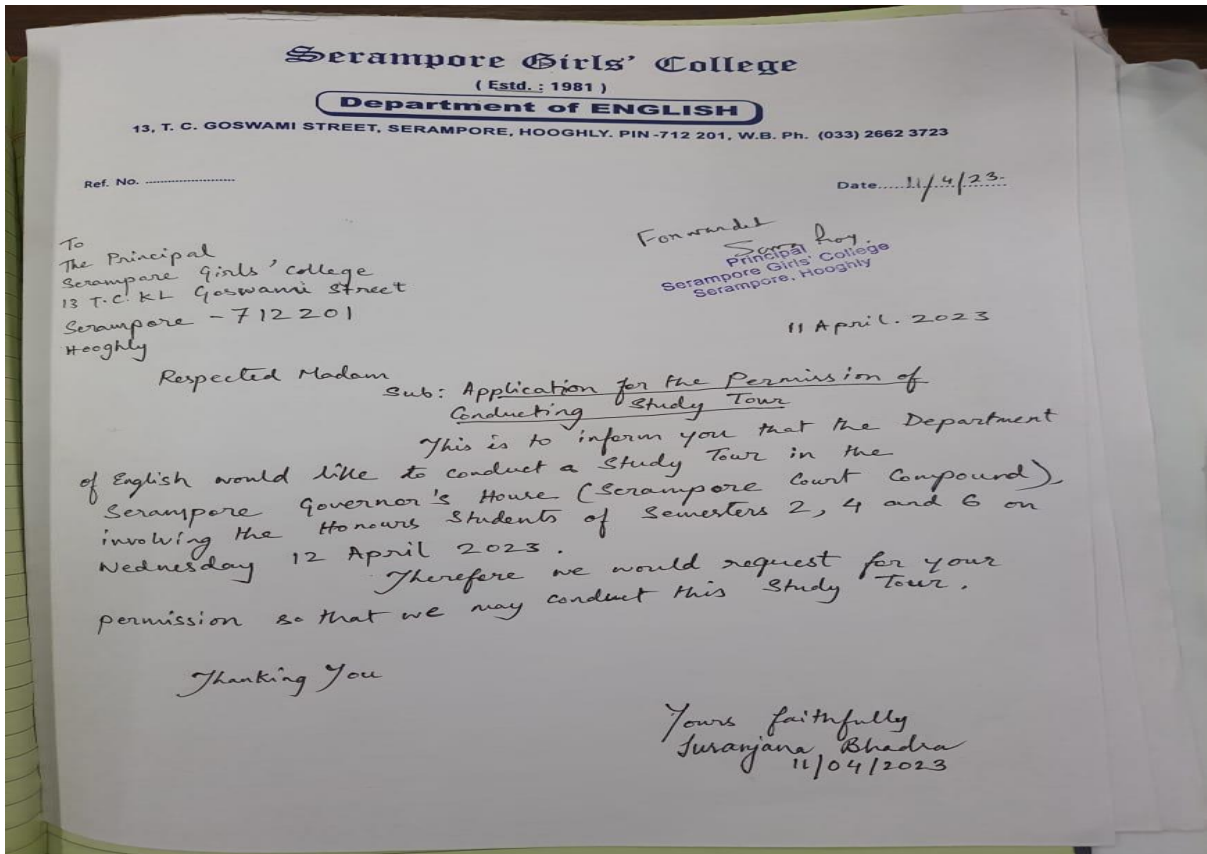 Serampore Girls' College
( Estd. : 1981 )
Department of ENGLISH
13, T. C. GOSWAMI STREET, SERAMPORE, HOOGHLY. PIN -712 201, W.B. Ph. (033) 2662 3723
Ref. No. ........................
Date..... 11/4/23.
To
The Principal
Serampore Girls' College
13 T.C. KL Goswami Street
Serampore - 712201
Hooghly
Forwarded
Roy.
Principal
Serampore Girls' College
Serampore, Hooghly
11 April. 2023
Respected Madam
Sub: Application for the Permission of
Conducting Study Tour
This is to inform you that the Department
of English would like to conduct a Study Tour in the
Serampore Governor's House (Serampore Court Compound),
involving the Honours Students of Semesters 2, 4 and 6 on
Wednesday 12 April 2023.
Therefore we would request for your
permission so that we may conduct this Study Tour.
Thanking You
Yours faithfully
Suranjana Bhadra
11/04/2023